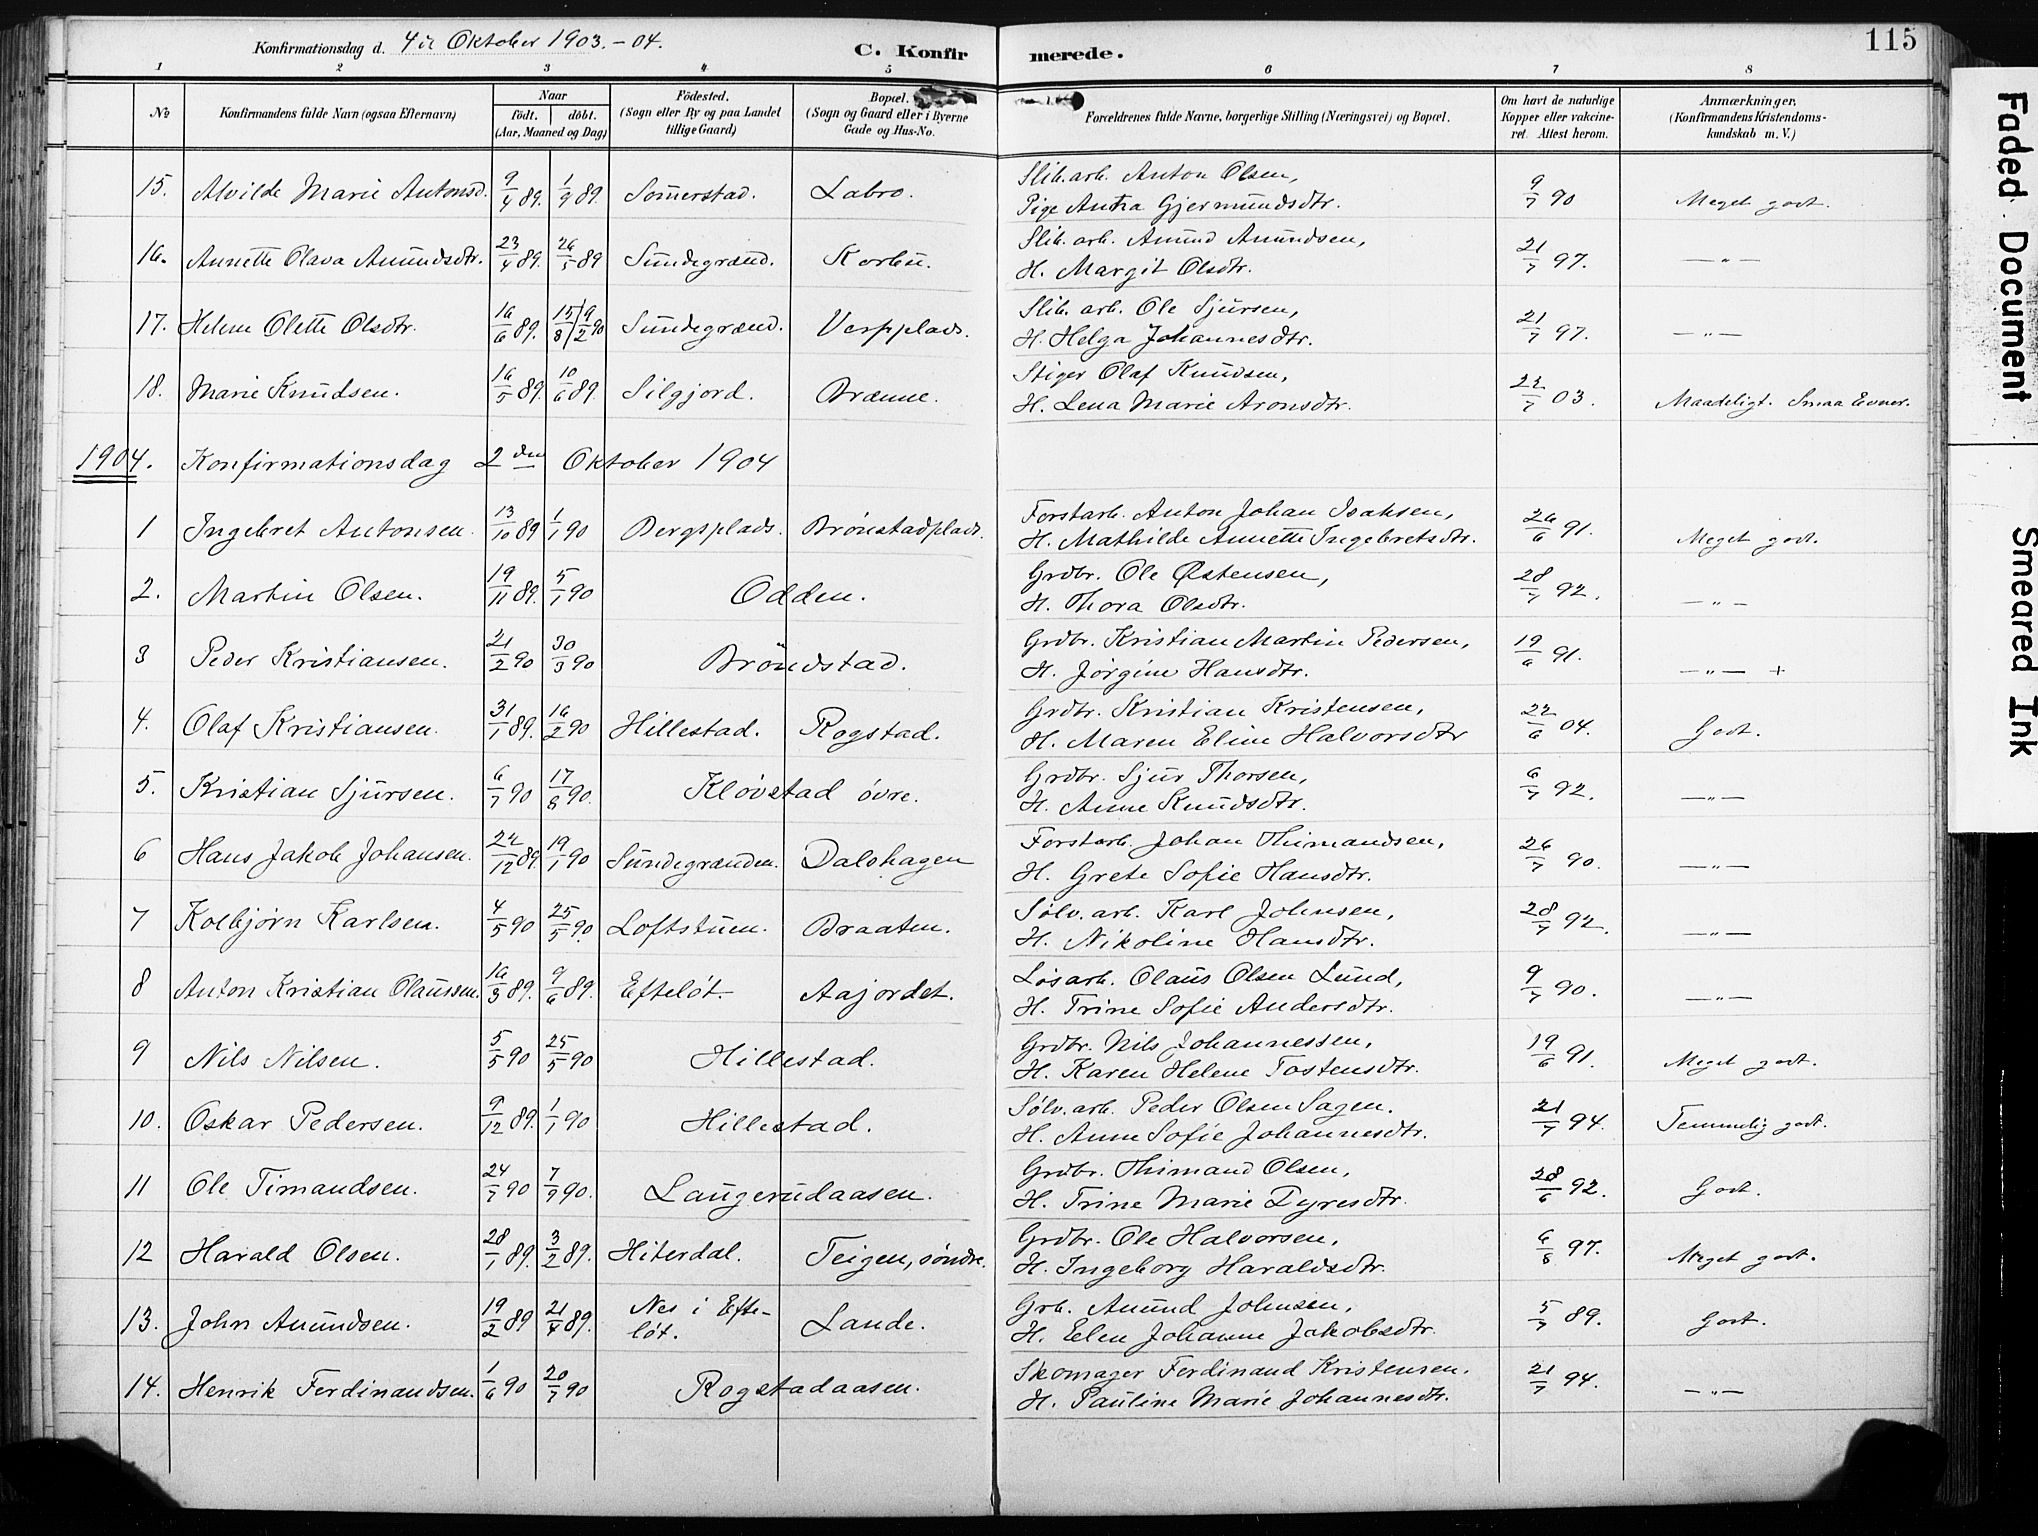 Konfirmationsdag d. 4de Oktober 1903.-04. C. Konfirmerede. 115
1 2 3 4 5 6 7 8
No Konfirmandens fulde Navn (ogsaa Efternavn) Naar födt. döbt. (Aar, Maaned og Dag) Födested. (Sogn eller By og paa Landet tillige Gaard) Bopæl. (Sogn og Gaard eller i Byerne Gade og Hus-No. Forældrenes fulde Navne, borgerlige Stilling (Næringsvei) og Bopæl. Om havt de naturlige Kopper eller vakcineret. Attest herom. Anmærkninger. (Konfirmandens Kristendomskundskab m. V.)
15. Alvilde Marie Antonsd. 9/4 89. 1/9 89. Somerstad. Labro. Slib.arb. Anton Olsen, Pige Antra Gjermundsdtr. 9/7 90 Meget godt.
16. Annette Olava Amundsdtr. 23/4 89. 26/5 89 Sundegrænd. Korbu. Slib. arb. Amund Amundsen, H. Margit Olsdtr. 21/7 97. —„—
17. Helene Olette Olsdtr. 16/6 89. 15/8 | 9/2 90 Sundegrænd. Verpplads. Slib. arb. Ole Sjursen, H. Helga Johannesdtr. 21/7 97. —„—
18. Marie Knudsen. 16/5 89. 10/6 89. Silgjord. Brænne. Stiger Olaf Knudsen, H. Lena Marie Aronsdtr. 22/7 03. Maadeligt. Smaa Evner.
1904. Konfirmationsdag 2den Oktober 1904
1 Ingebret Antonsen. 13/10 89 1/1 90 Bergsplads. Brönstadplads. Forstarb. Anton Johan Isaksen, H. Mathilde Annette Ingebretsdtr. 26/6 91. Meget godt.
2. Martin Olsen. 19/11 89. 5/1 90 Odden. Grdbr. Ole Østensen, H. Thora Olsdtr. 28/7 92. —„—
3 Peder Kristiansen. 21/2 90 30/3 90 Bröndstad. Grdbr. Kristian Martin Pedersen, H. Jörgine Hansdtr. 19/6 91. —„— +
4. Olaf Kristiansen. 31/1 89. 16/2 90 Hillestad. Rogstad. Grdbr. Kristian Kristensen, H. Maren Eline Halvorsdtr 22/6 04. Godt.
5. Kristian Sjursen. 6/7 90 17/8 90. Klövstad övre. Grdbr. Sjur Thorsen, H. Anne Knudsdtr. 6/7 92. —„—
6 Hans Jakob Johansen. 24/12 89. 19/1 90 Sundegrænden. Dalshagen Forstarb. Johan Thimandsen, H. Grete Sofie Hansdtr. 26/7 90. —„—
7 Kolbjørn Karlsen. 4/5 90 25/5 90. Loftstuen. Braaten. Sølv. arb. Karl Johnsen, H. Nikoline Hansdtr. 28/7 92. —„—
8 Anton Kristian Olaussen. 16/3 89. 9/6 89. Efteløt. Aajordet. Løsarb. Olaus Olsen Lund, H. Trine Sofie Andersdtr. 9/7 90. —„—
9 Nils Nilsen. 5/5 90 25/5 90 Hillestad. Grdbr. Nils Johannessen, H. Karen Helene Tostensdtr. 19/6 91. Meget godt.
10. Oskar Pedersen. 9/12 89. 1/1 90 Hillestad. Sølv. arb. Peder Olsen Sagen. H. Anne Sofie Johannesdtr. 21/7 94. Temmelig godt.
11 Ole Timandsen. 24/7 90 7/9 90. Laugerudaasen. Grdbr. Thimand Olsen, H. Trine Marie Dyresdtr. 28/6 92. Godt.
12 Harald Olsen. 28/1 89. 3/2 89. Hiterdal. Teigen, söndre. Grdbr. Ole Halvorsen, H. Ingeborg Haraldsdtr. 6/8 97. Meget godt.
13. John Amundsen. 19/2 89 21/4 89. Nes i Efteløt. Lande. Grb. Amund Johnsen, H. Elen Johanne Jakobsdtr. 5/7 89. Godt.
14. Henrik Ferdinandsen. 1/6 90 20/7 90 Rogstadaasen. Skomager Ferdinand Kristensen. H. Pauline Marie Johannesdtr. 21/7 94. —„—
Faded Document
Smeared Ink